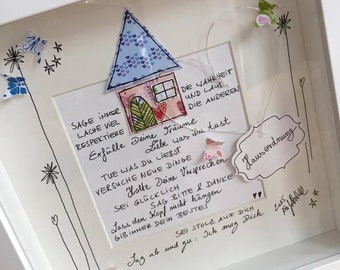 SAGE IMMER DIE WAHRHEIT
LACHE VIEL UND LAUT
RESPEKTIERE DIE ANDEREN
Erfülle Deine Träume
Liebe was du hast
TUE WAS DU LIEBST
VERSUCHE NEUE DINGE
Halte Deine Versprechen
SEI GLÜCKLICH
SAG BITTE & DANKE
Lass den Kopf nicht hängen
GIB IMMER DEIN BESTES
SEI STOLZ AUF DICH
Sag ab und zu: Ich mag Dich
Hausordnung